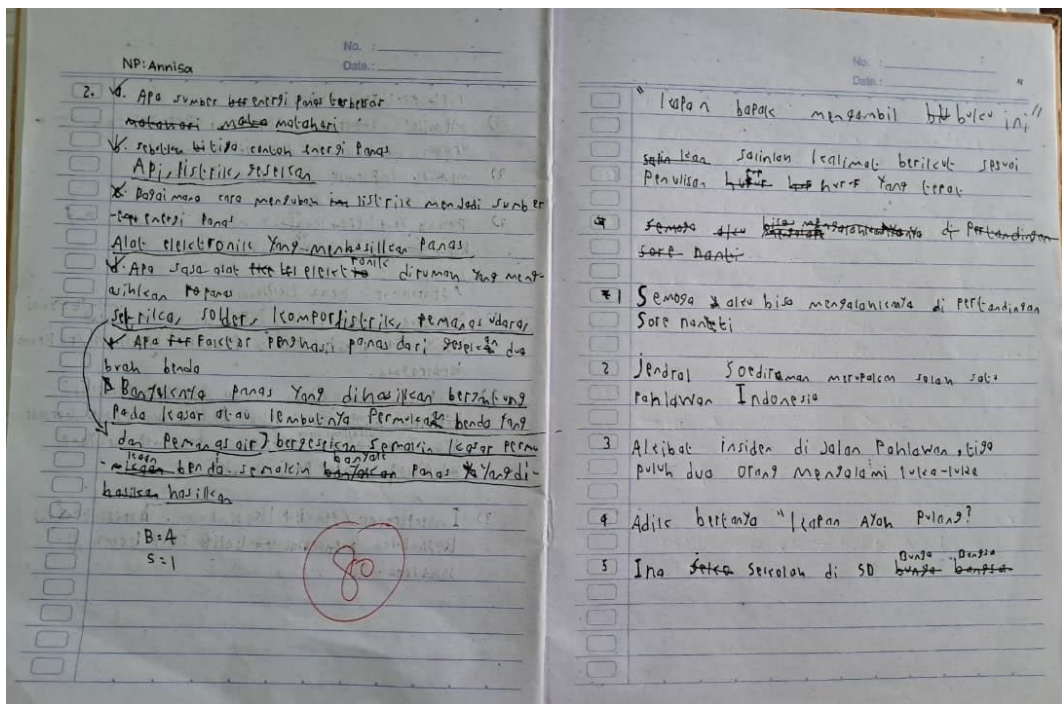 No. :
NP: Annisa
Date.:
2. a. Apa sumber energi panas terbesar
matahari
b. sebutkan tiga contoh energi panas
Api, listrik, gesekan
Bagaimana cara mengubah listrik menjadi sumber
energi panas
Alat elektronik Yang menhasillkan panas
Apa saja alat elektronik dirumah Yang meng-
setrika, solder, komporlistrik, Pemanas udara,
Apa Faktor Penghasil panas dari gesekan dua
buah benda
Banyaknya panas Yang dihasilkan bergantung
Pada kasar atau lembutnya Permukaan benda Yang
dan Pemanas air) bergesekan semakin kasar Permu
kaan benda semakin banyak Panas Yang di-
hasilkan
B=4
S=1
80
No. :
Date :
"kapan bapak mengambil buku ini"
salinlah kalimat berikut sesuai
Penulisan huruf Yang tepat
1 Semoga aku bisa mengalahkannya di Pertandingan
Sore nanti
2 Jendral Soedirman merupakan salah satu
Pahlawan Indonesia
3 Akibat insiden di Jalan Pahlawan, tiga
puluh dua orang mengalami luka-luka
4 Adik bertanya "kapan Ayah Pulang?
5 Ina Sekolah di SD Bunga Bangsa